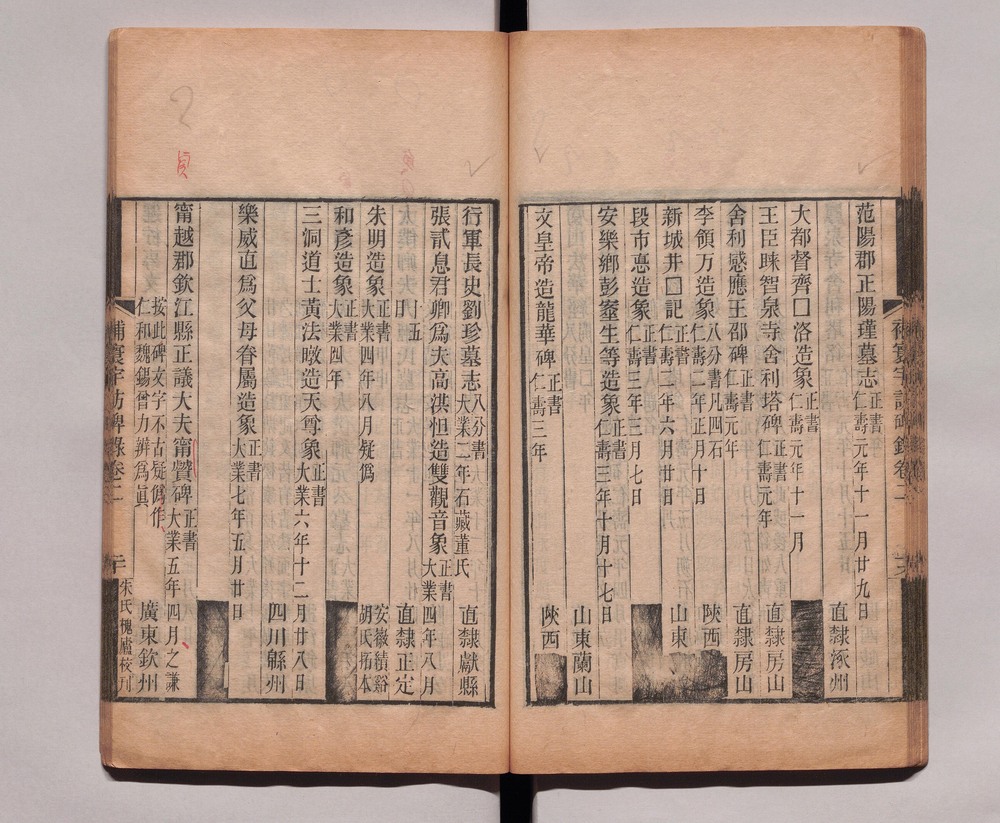 范陽郡正陽瑾墓志 正書 仁壽元年十一月廿九日 直隸涿州
大都督齊□洛造象 正書 仁壽元年十一月
王臣暕智泉寺舍利塔碑 正書 仁壽元年 直隸房山
舍利感應王邵碑 正書 仁壽元年 直隸房山
李領万造象 八分書凡四石 仁壽二年正月十日 陝西
新城井□記 正書 仁壽二年六月廿日 山東
段市惪造象 正書 仁壽三年三月七日
安樂鄉彭䥐生等造象 正書 仁壽三年十月十七日 山東蘭山
文皇帝造龍華碑 正書 仁壽三年 陝西
補寰宇訪碑錄卷二
行軍長史劉珍墓志 八分書 大業二年石藏董氏 直隸獻縣
張貳息君卿爲夫高洪怛造雙觀音象 正書 大業四年八月 直隸正定
朱明造象 正書 大業四年八月疑僞 安徽績谿胡氏拓本
和彥造象 正書 大業四年
三洞道士黃法暾造天尊象 正書 大業六年十二月廿八日 四川緜州
樂威直爲父母眷屬造象 正書 大業七年五月廿日
甯越郡欽江縣正議大夫甯贙碑 正書 大業五年四月之謙
按此碑文字不古疑僞作
仁和魏錫曾力辨爲眞 廣東欽州
補寰宇訪碑錄卷二
朱氏槐廬校刊